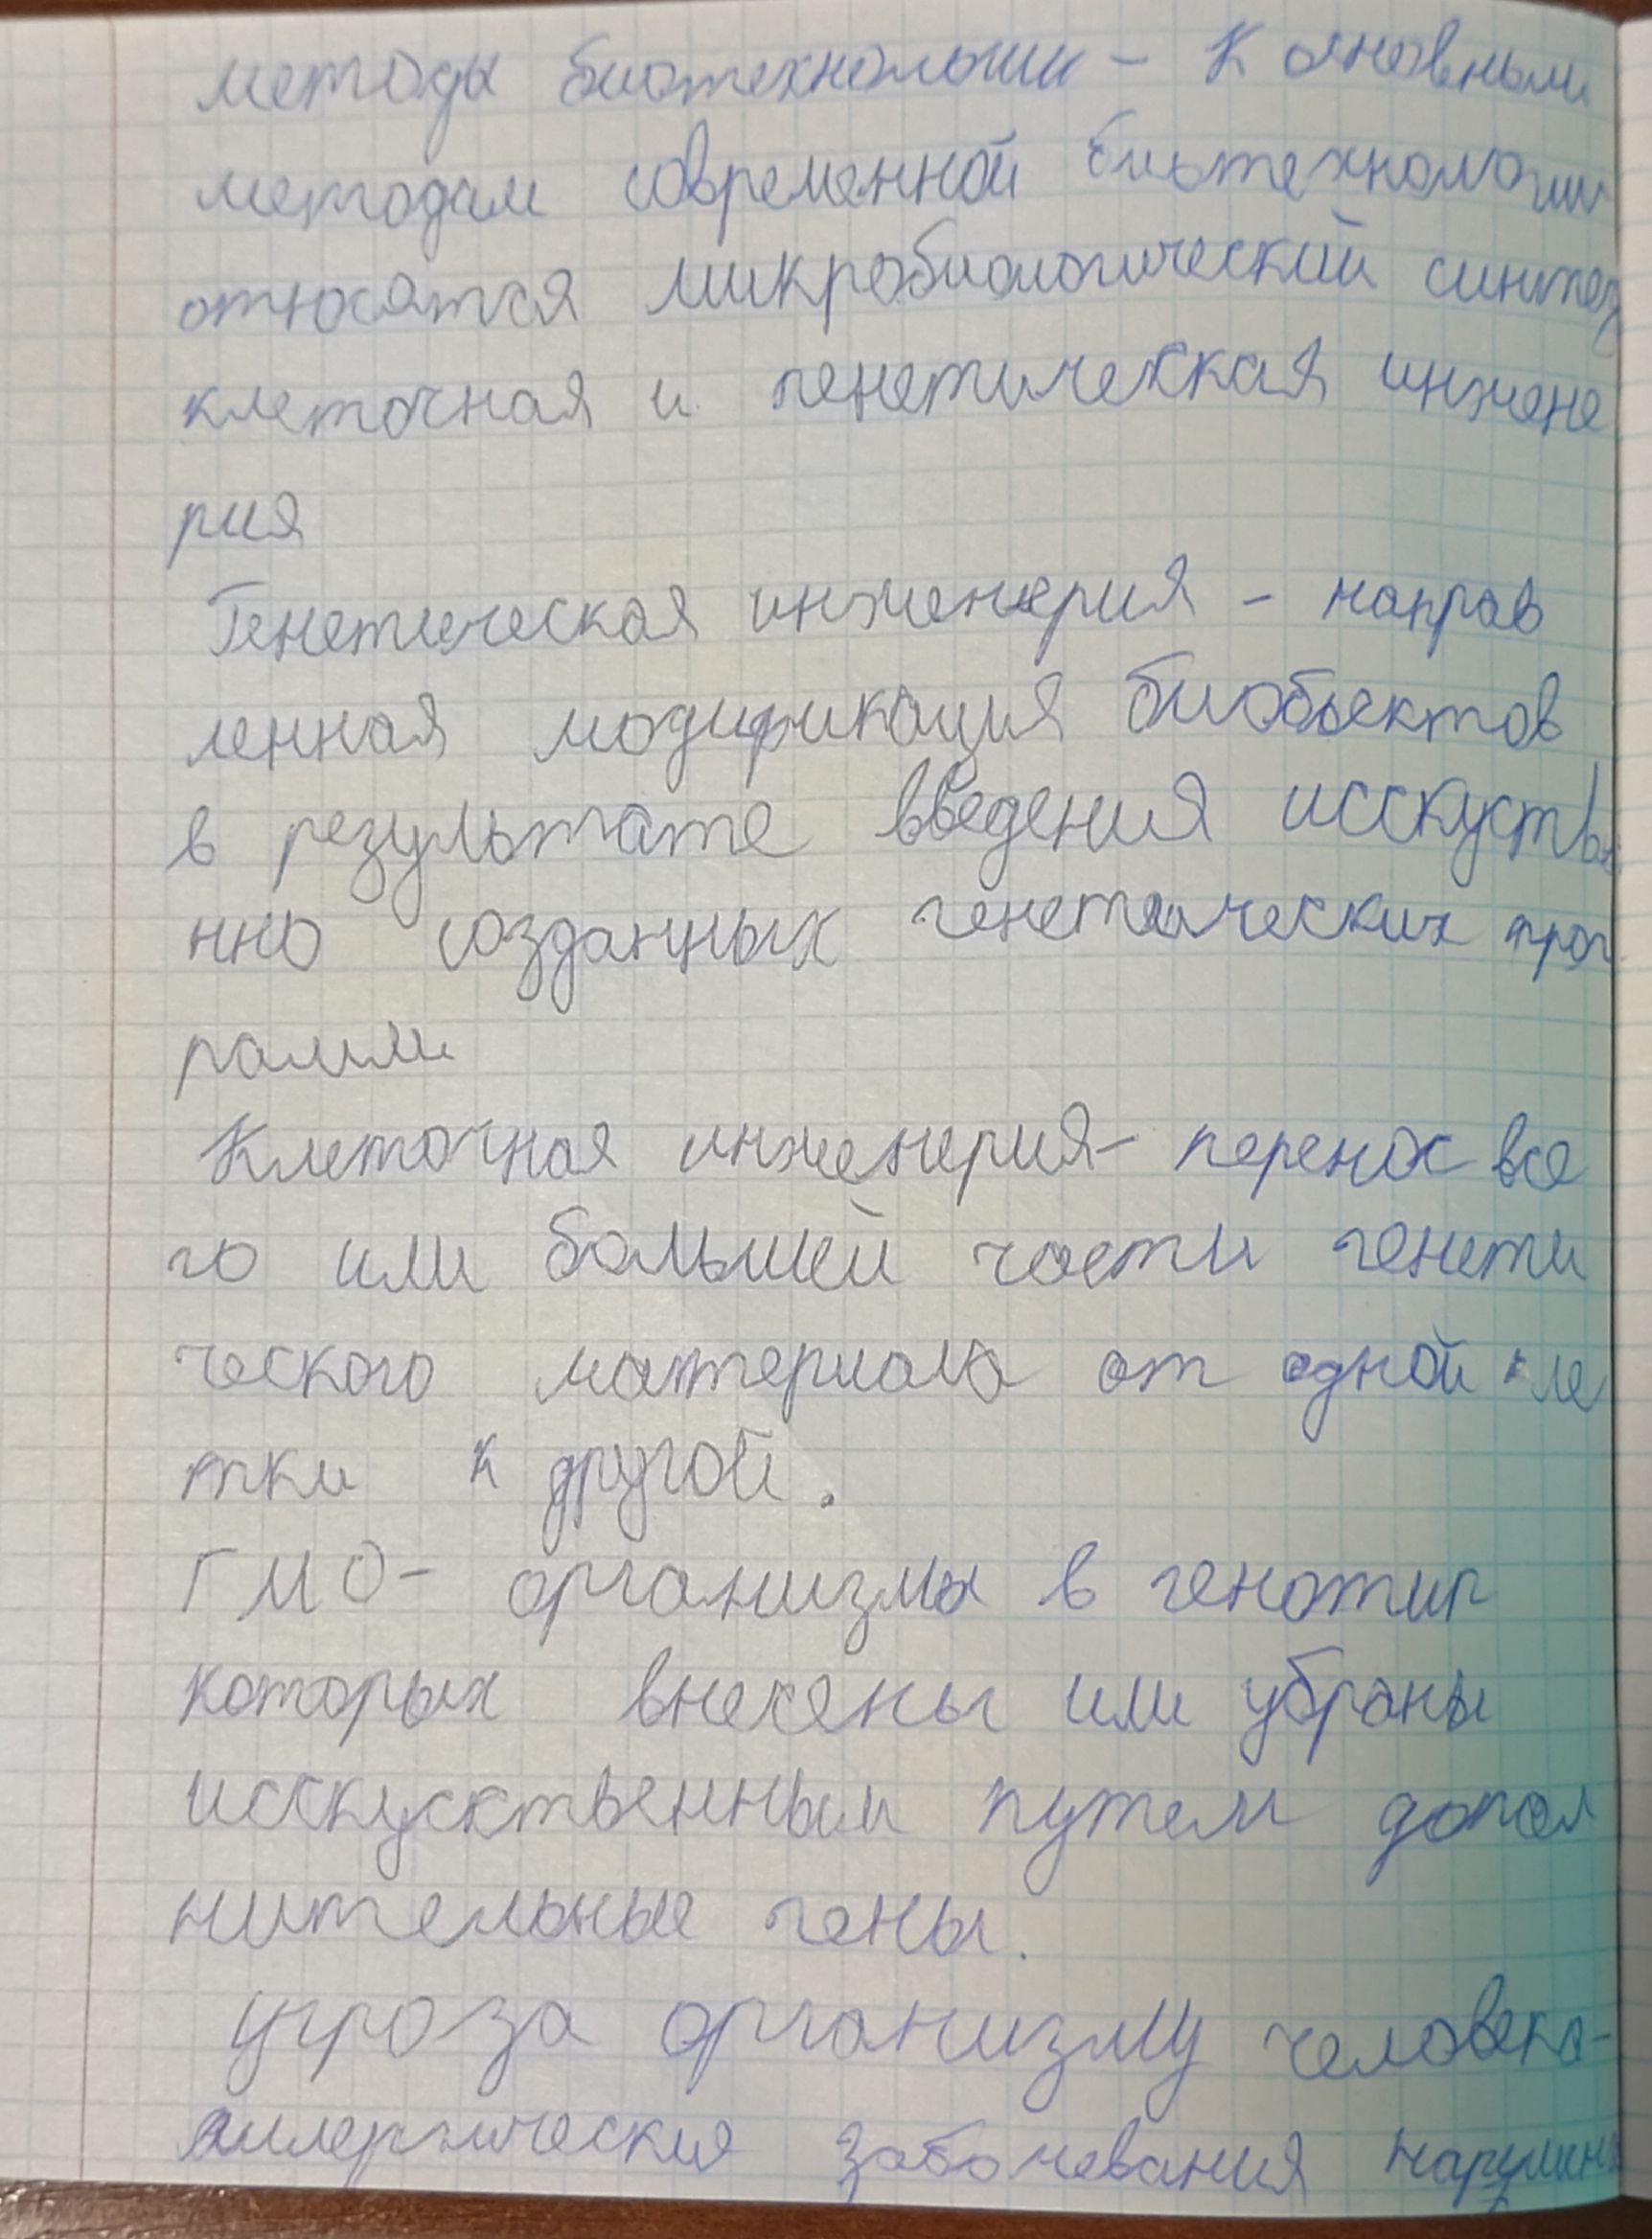 методы биотехнологии - К основным
методам современной биотехнологии
относятся микробиологический синтез
клеточная и генетическая инжене
рия
Генетическая инженерия - направ
ленная модификация биобъектов
в результате введения исскустве
нно созданных генетических прог
рамм
Клеточная инженерия - перенос все
го или большей части генети
ческого материала от одной кле
тки к другой.
ГМО - организмы в генотип
которых внесены или убраны
исскускственным путем допол
нительные гены.
угроза организму человека -
аллергические заболевания